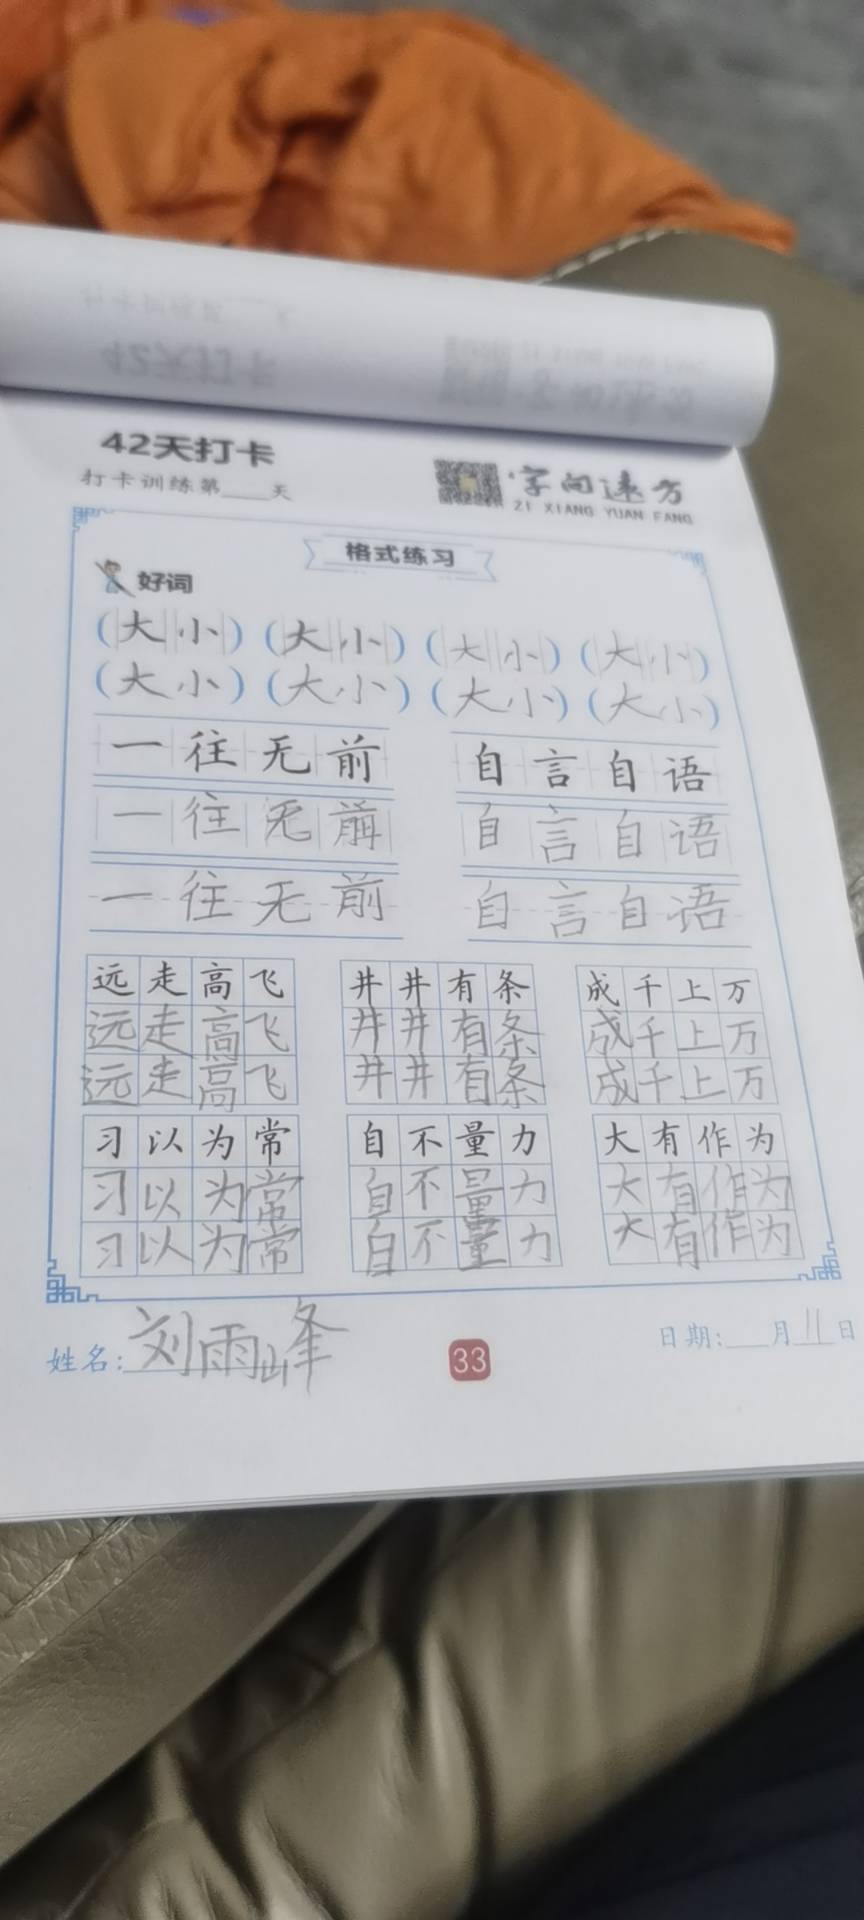 42天打卡
打卡训练第___天
字向远方
ZI XIANG YUAN FANG
格式练习
好词
(大小) (大小) (大小) (大小)
(大小) (大小) (大小) (大小)
一往无前 自言自语
一往无前 自言自语
一往无前 自言自语
远走高飞 井井有条 成千上万
远走高飞 井井有条 成千上万
远走高飞 井井有条 成千上万
习以为常 自不量力 大有作为
习以为常 自不量力 大有作为
习以为常 自不量力 大有作为
姓名:刘雨峰
33
日期:___月11日